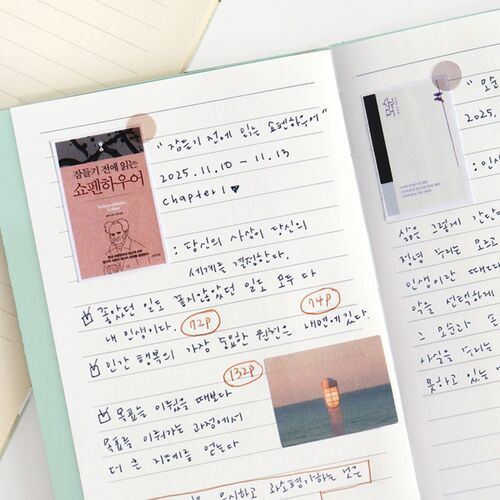 잠들기 전에 읽는
쇼펜하우어
"잠들기 전에 읽는 쇼펜하우어"
2025. 11. 10 - 11. 13
chapter 1 ♥
: 당신의 사상이 당신의
세계를 결정한다.
좋았던 일도 좋지않았던 일도 모두 다
내 인생이다. 72p 74p
인간 행복의 가장 중요한 원천은 내면에있다.
132p
목표를 이뤘을 때보다
목표를 이뤄가는 과정에서
더 큰 지혜를 얻는다
과소평가하는 것은
모순
" 모순
2025.
: 인생
삶은 그렇게 간단
정녕 우리는 모르고
인생이란 때때로
악을 선택하게
그 모순과
사실을 우리는
못하고 있는